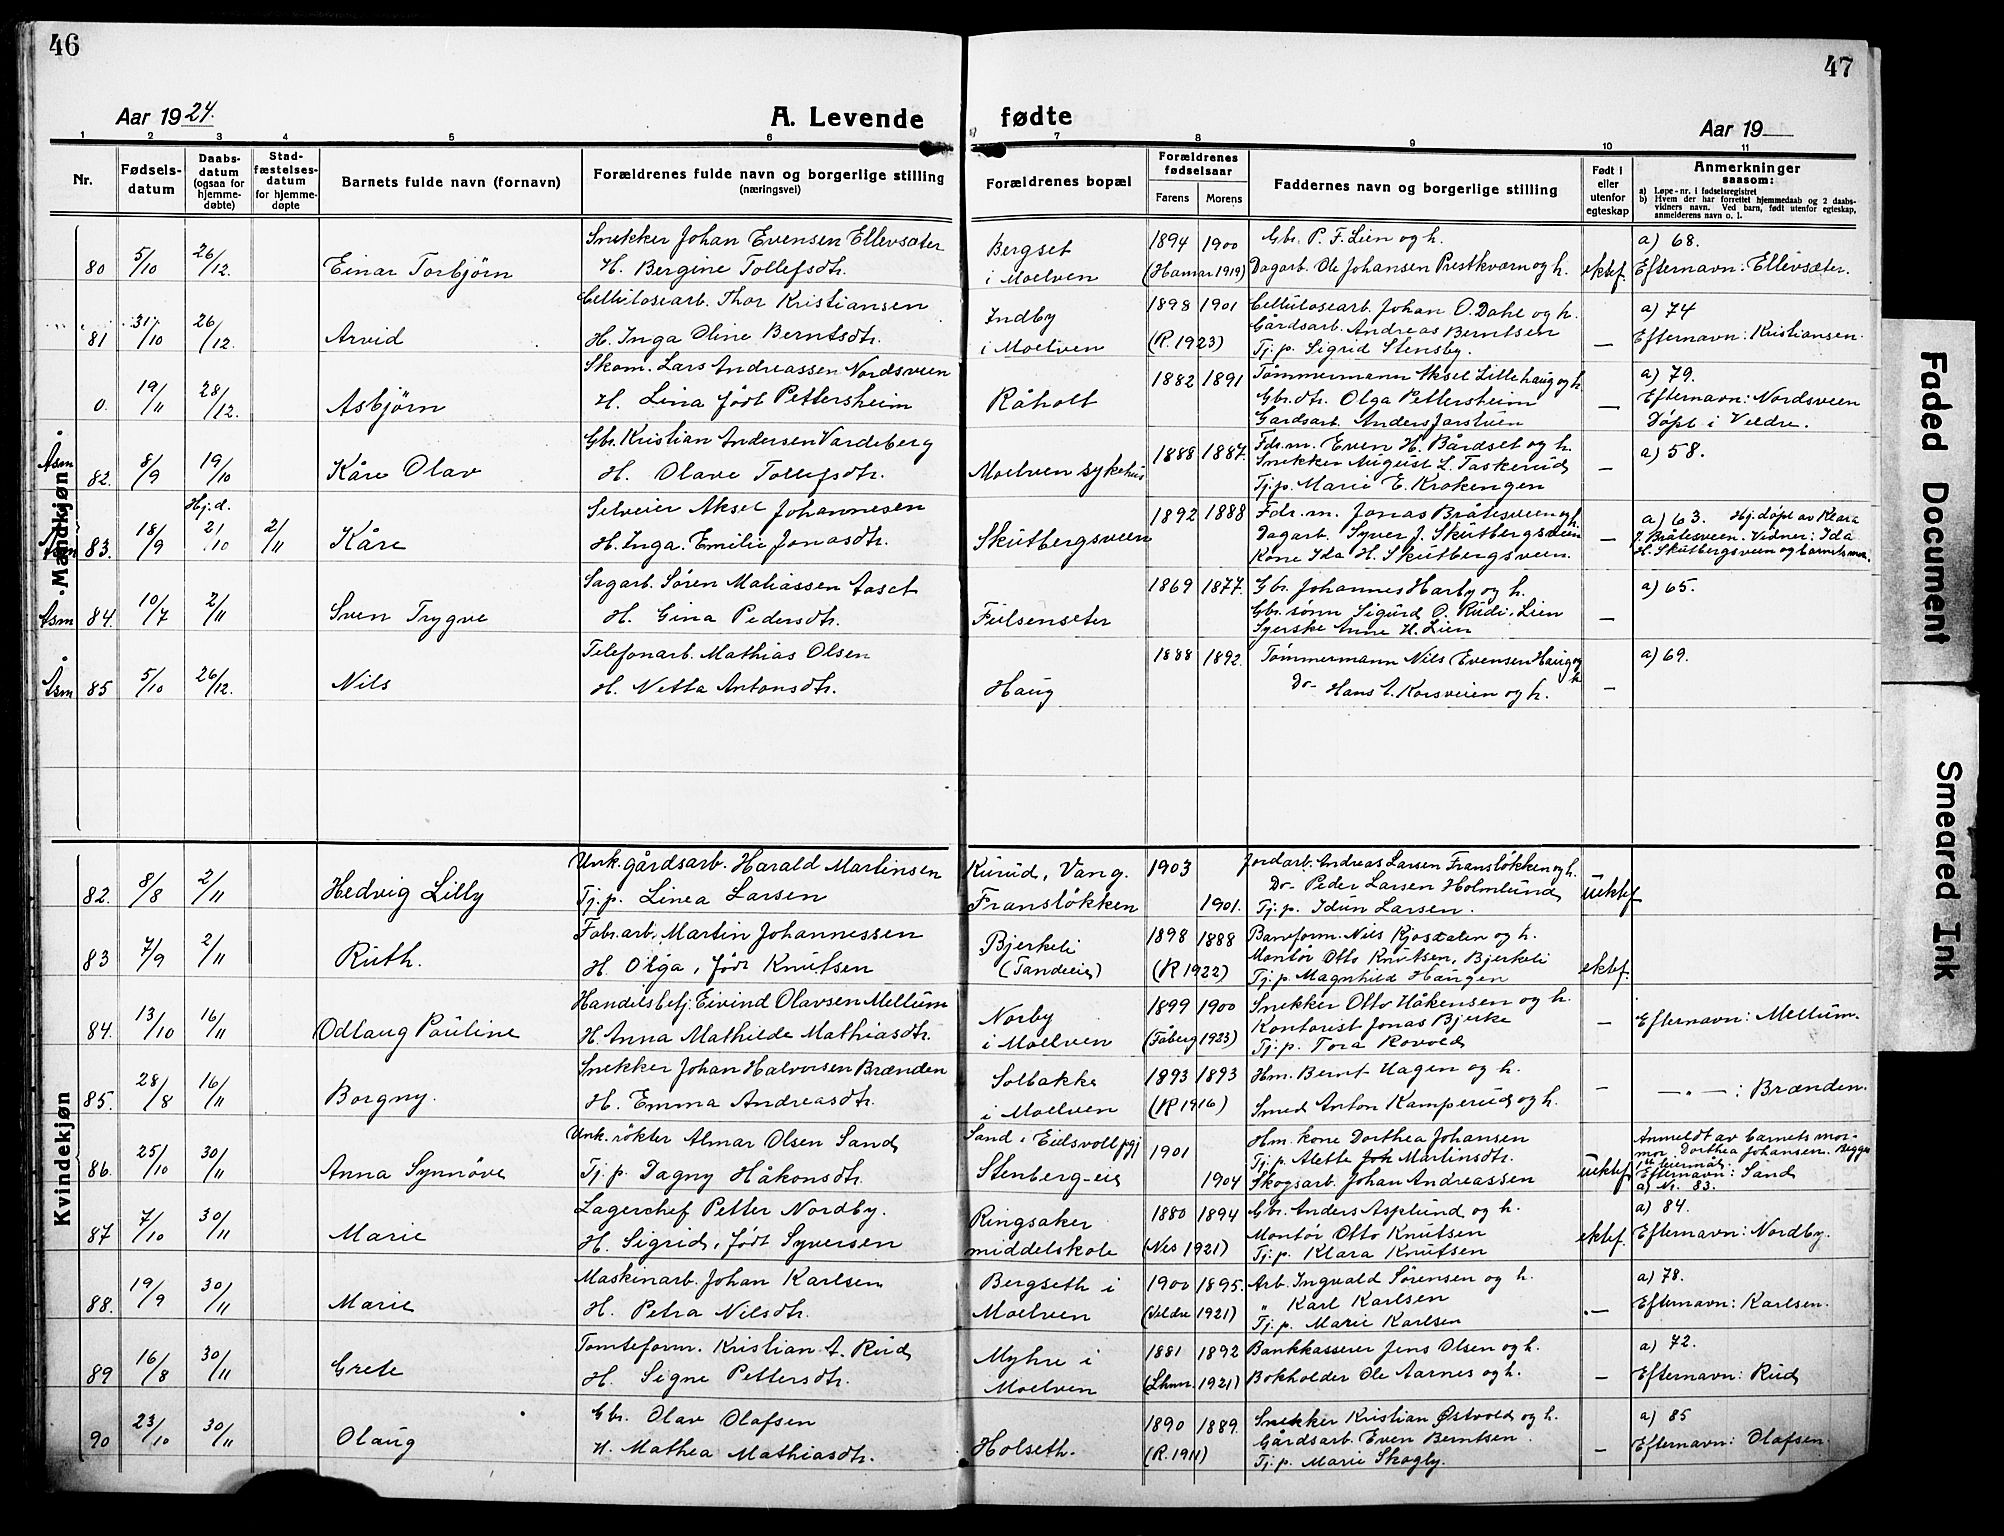 46
47
Aar 1924.
A. Levende fødte
Aar 19
1 2 3 4 5 6 7 8 9 10 11
Nr.
Fødsels-
datum
Daabs-
datum
(ogsaa for
hjemme-
døbte)
Stad-
fæstelses-
datum
for hjemme-
døpte
Barnets fulde navn (fornavn)
Forældrenes fulde navn og borgerlige stilling
(næringsvei)
Forældrenes bopæl
Forældrenes
fødselsaar
Farens Morens
Faddernes navn og borgerlige stilling
Født i
eller
utenfor
egteskap
Anmerkninger
saasom:
a) Løpe-nr. i fødselsregistret
b) Hvem der har forrettet hjemmedaab og 2 daabs-
vidners navn. Ved barn, født utenfor egteskap,
anmelderens navn o. l.
Mandkjøn
80 5/10 26/12. Einar Torbjørn
Snekker Johan Evensen Ellevsæter
H. Bergine Tollefsdtr.
Bergset
i Moelven
1894 1900
(Hamar 1919)
Gbr. P. F. Lien og h.
Dagarb. Ole Johansen Prestkværn og h.
ektef.
a) 68.
Efternavn: Ellevsæter.
81 31/10 26/12. Arvid
Cellulosearb. Thor Kristiansen
H. Inga Oline Berntsdtr.
Indby
i Moelven
1898 1901
(R. 1923)
Cellulosearb. Johan O. Dahl og h.
Gårdsarb. Andreas Berntsen
Tj. p. Sigrid Stensby.
—
a) 74
Efternavn: Kristiansen.
0. 19/11 28/12. Asbjørn
Skom. Lars Andreassen Nordsveen
H. Lina født Pettersheim
Råholt
1882 1891
Tømmermann Aksel Lillehaug og h.
Gbr. dtr. Olga Pettersheim
Gardsarb. Anders Jarstuen
—
a) 79.
Efternavn: Nordsveen
Døpt i Veldre.
Åsm 82. 8/9 19/10 Kåre Olav
Gbr. Kristian Andersen Vardeberg
H. Olave Tollefsdtr.
Moelven sykehus
1888 1887.
Fdr. m. Even H. Bårdset og h.
Snekker August L. Taskerud
Tj. p. Marie E. Krokengen
—
a) 58.
Åsm 83. 18/9 Hj. d. 21/10 2/11 Kåre
Selveier Aksel Johannesen
H. Inga Emilie Jonasdtr.
Skutbergsveen
1892 1888
Fdr. m. Jonas Bråtesveen og h.
Dagarb. Syver J. Skutbergsveen
Kone Ida H. Skutbergsveen.
—
a) 63. Hj. døpt av Klara
J. Bråtesveen. Vidner: Ida
H. Skutbergsveen og barnets mor.
Åsm 84. 10/7 2/11 Sven Trygve
Sagarb. Søren Matiassen Aaset
H. Gina Pedersdtr.
Fielsenseter
1869 1877.
Gbr. Johannes Harby og h.
Gbr. sønn Sigurd O. Rudi-Lien
Syerske Anne H. Lien
—
a) 65.
Åsm 85 5/10 26/12. Nils
Telefonarb. Mathias Olsen
H. Netta Antonsdtr.
Haug
1888 1892.
Tømmermann Nils Evensen Haug og h.
Do- Hans A. Korsveien og h.
—
a) 69.
Kvindekjøn
82. 8/8 2/11 Hedvig Lilly
Unk. gårdsarb. Harald Martinsen
Tj. p. Linea Larsen
Kurud, Vang.
Fransløkken
1903
1901.
Jordarb. Andreas Larsen Fransløkken og h.
Do- Peder Larsen Holmlund
Tj. p. Idun Larsen.
uektef.
83 7/9 2/11 Ruth.
Fabr. arb. Martin Johannessen
H. Olga, født Knutsen
Bjerkeli
(Tandeeie)
1898 1888
(R 1922)
Baneform. Nils Kjosdalen og h.
Montør Otto Knutsen, Bjerkeli
Tj. p. Magnhild Haugen
ektef.
84. 13/10 16/11 Odlaug Pauline
Handelsbetj. Eivind Olavsen Mellum
H. Anna Mathilde Mathiasdtr.
Norby
i Moelven
1899 1900
(Fåberg 1923)
Snekker Otto Håkensen og h.
Kontorist Jonas Bjerke
Tj. p. Tora Rovold
—
Efternavn: Mellum.
85. 28/8 16/11 Borgny.
Snekker Johan Halvorsen Brænden
H. Emma Andreasdtr.
Solbakke
i Moelven
1893 1893
(R 1916)
Hm. Bernt Hagen og h.
Smed Anton Kamperud og h.
—
— " —: Brænden.
86. 25/10 30/11 Anna Synnøve
Unk. røkter Almar Olsen Sand
Tj. p. Dagny Håkonsdtr.
Sand, Eidsvoll pgj
Stenberg-eie
1901
1904
Hm. kone Dorthea Johansen
Tj. p. Alette Joh Martinsdtr.
Skogsarb. Johan Andreassen
uektef.
Anmeldt av barnets mor-
mor Dorthea Johansen. Begges
1ste leiermål.
Efternavn: Sand
a) Nr. 83.
87 7/10 30/11 Marie
Lagerchef Petter Nordby.
H. Sigrid, født Syversen
Ringsaker
middelskole
1880 1894
(Nes 1921)
Gbr. Anders Asplund og h.
Montør Otto Knutsen
Tj. p. Klara Knutsen
ektef.
a) 84.
Efternavn: Nordby.
88. 19/9 30/11 Marie
Maskinarb. Johan Karlsen
H. Petra Nilsdtr.
Bergseth i
Moelven
1900 1895.
(Veldre 1921)
Arb. Ingvald Sørensen og h.
" Karl Karlsen
Tj. p. Marie Karlsen
—
a) 78.
Efternavn: Karlsen.
89 16/8 30/11 Grete
Tomteform. Kristian A. Rud
H. Signe Pettersdtr.
Myhre i
Moelven
1881 1892
(Lhmr. 1921)
Bankkasserer Jens Olsen og h.
Bokholder Ole Aarnes og h.
—
a) 72.
Efternavn: Rud
90 23/10 30/11 Olaug
Gbr. Olav Olafsen
H. Mathea Mathiasdtr.
Holseth.
1890 1889.
(R. 1911)
Snekker Kristian Østvold og h.
Gårdsarb. Even Berntsen.
Tj. p. Marie Skogly.
—
a) 85
Efternavn: Olafsen.
Faded Document
Smeared Ink